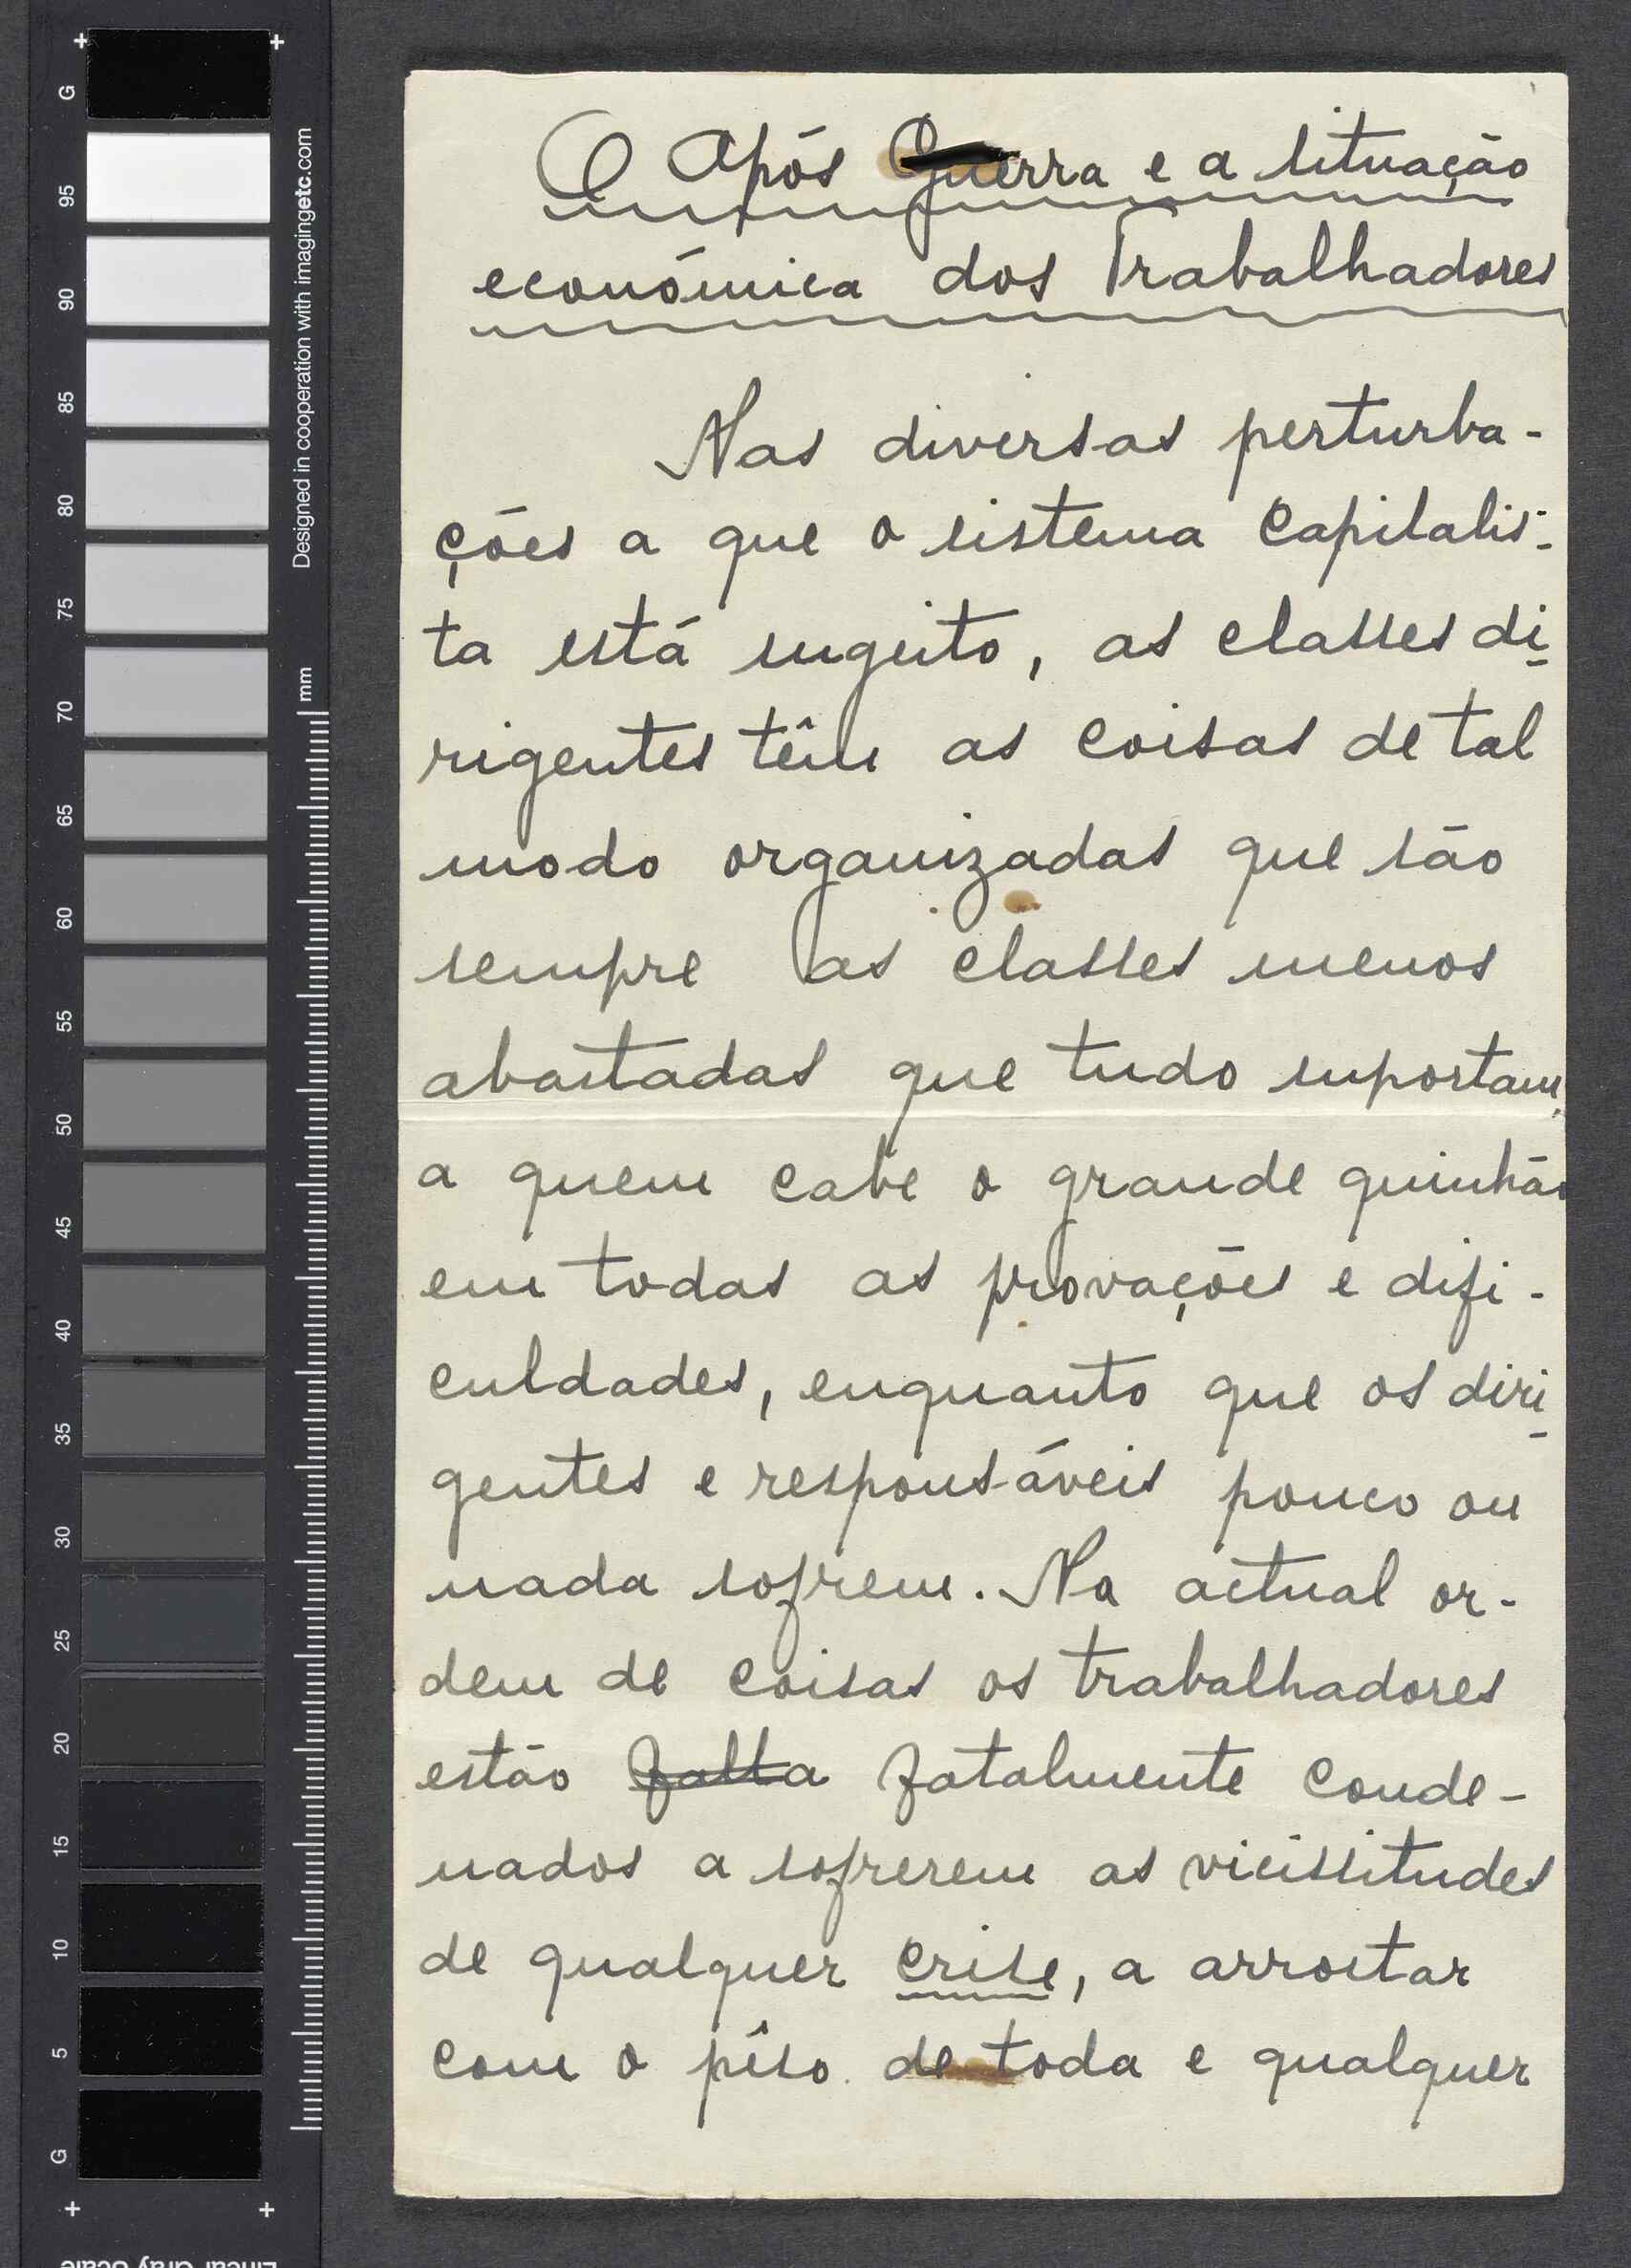 O Após Guerra e a situação
económica dos Trabalhadores
Nas diversas perturba-
ções a que o sistema capitalis-
ta está sugeito, as classes di-
rigentes têm as coisas de tal
modo organizadas que são
sempre as classes menos
abastadas que tudo suportam,
a quem cabe o grande quinhão
em todas as provações e difi-
culdades, enquanto que os diri-
gentes e responsáveis pouco ou
nada sofrem. Na actual or-
dem de coisas os trabalhadores
estão falta fatalmente conde-
nados a sofrerem as vicissitudes
de qualquer crise, a arrostar
com o pêso de toda e qualquer
G
95
90
85
80
75
70
65
60
55
50
45
40
35
30
25
20
15
10
5
G
Designed in cooperation with imagingetc.com
mm